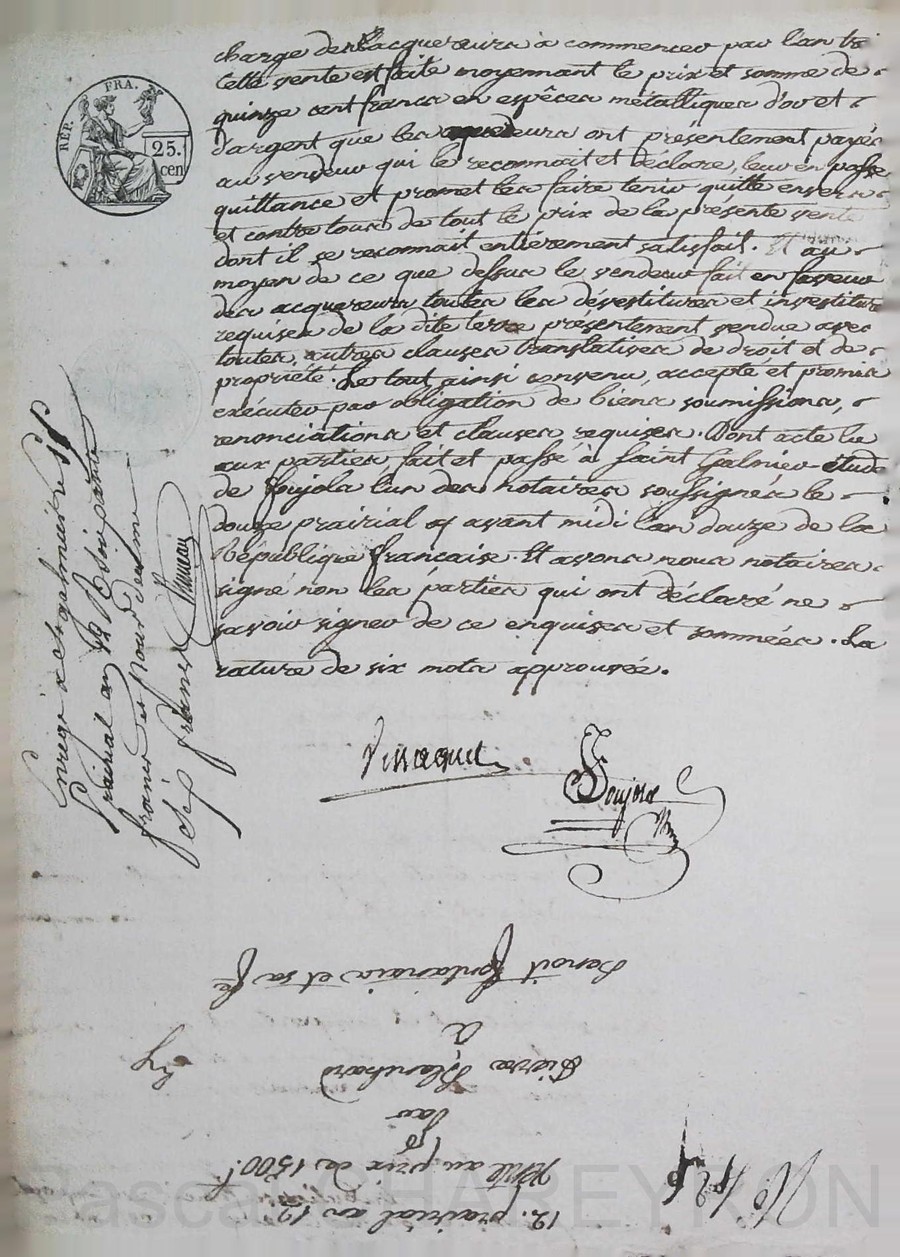 REP. FRA.
25.
cen
charge des acquereurs à commencer par l'an
cette vente est faite moyennant le prix et somme de
quinze cent francs en espèces métalliques d'or et
d'argent que les acquereurs ont présentement payés
au vendeur qui le reconnait et déclare, leur en passe
quittance et promet les faire tenir quitte envers
et contre tous de tout le prix de la présente vente
dont il se reconnait entièrement satisfait. Et au
moyen de ce que dessus le vendeur fait en faveur
des acquereurs toutes les dévestitures et investitures
requises de la dite terre présentement vendue avec
toutes autres clauses translatives de droit et de
propriété. Le tout ainsi convenu, accepté et promis
exécuter par obligation de biens soumissions,
renonciations et clauses requises. Dont acte lu
aux parties, fait et passé à Saint Galmier étude
de Foujols l'un des notaires soussignés le
douze prairial avant midi l'an douze de la
République française. Et avons nous notaires
signé non les parties qui ont déclaré ne
savoir signer de ce enquises et sommées. La
rature de six mots approuvée.
Foujols
Enregé à St galmier le
Prairial an
francs et pour decime
six francs
12. prairial an 12
Vente au prix de 1500f.
par
Pierre Blanchard
à
Benoit Fontanais et sa fe
No